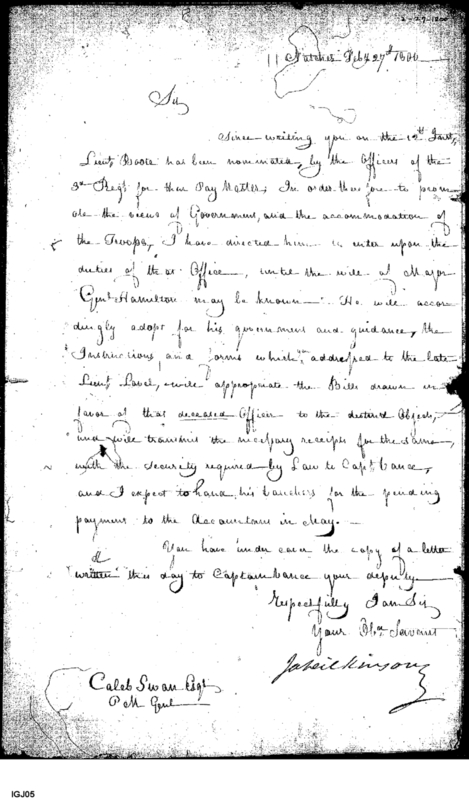 2-27-1800
Natchez Feby 27th 1800
Sir
Since writing you on the 12th Inst,
Lieut has been nominated, by the Officers of the
3rd Regt for their Pay Master, In order therefore to prom
ote the views of Government, and the accommodation of
the Troops, I have directed him to enter upon the
duties of that Office, until the will of Major
Genl Hamilton may be known. He will accor
dingly adopt for his government and guidance, the
Instructions, and forms which you addressed to the late
Lieut Lovel, will appropriate the Bills drawn in
favor of that deceased Officer to the destined Objects,
and will transmit the necessary receipts for the same,
with the security required by Law to Capt Vance,
and I expect to hand his Vouchers for the pending
payment to the Accountant in May.
You have under cover the copy of a letter
written this day to Captain Vance your deputy
Respectfully I am Sir
Your Obn Servant
Ja Wilkinson
Caleb Swan Esqr
P M Genl
IGJ05